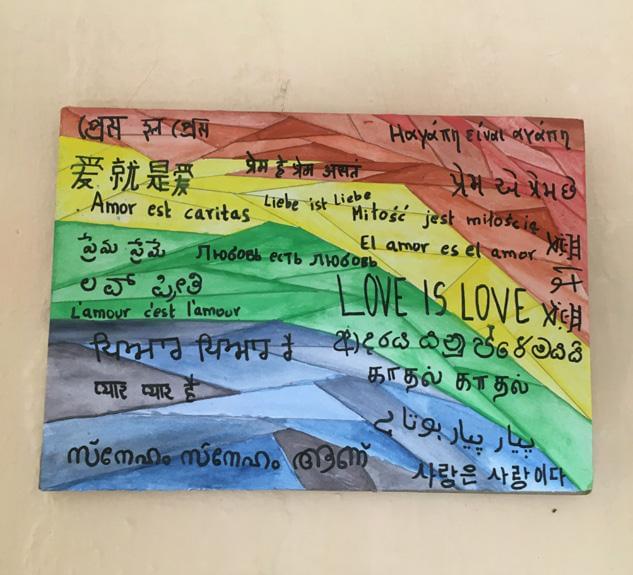 Η αγάπη είναι αγάπη
爱就是爱
प्रेम हे प्रेम असतं
પ્રેમ એ પ્રેમ છે
Amor est caritas
Liebe ist Liebe
Miłość jest miłością
ప్రేమ ప్రేమే
Любовь есть любовь
El amor es el amor
ಲವ್ ಪ್ರೀತಿ
L'amour c'est l'amour
LOVE IS LOVE
ਪਿਆਰ ਪਿਆਰ ਹੈ
ආදරය යනු ප්රේමයයි
காதல் காதல்
प्यार प्यार है
پیار پیار ہوتا ہے
സ്നേഹം സ്നേഹം ആണ്
사랑은 사랑이다